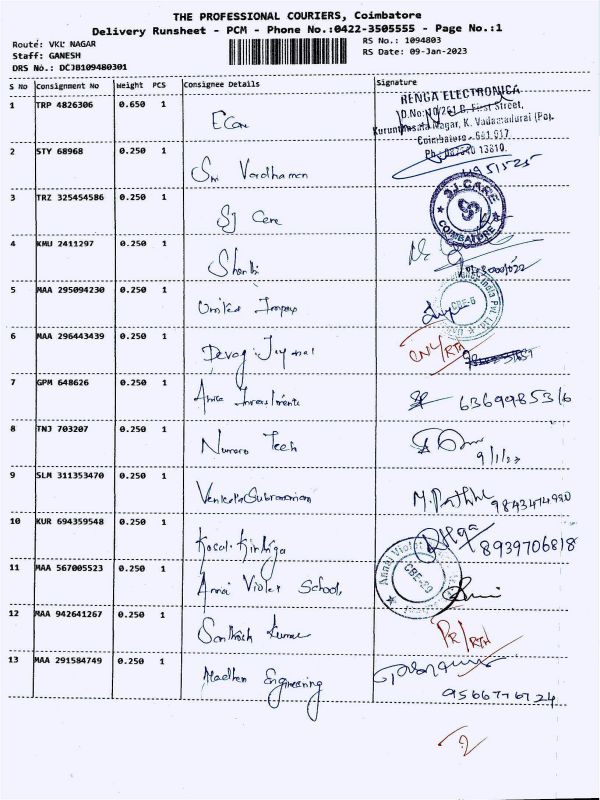 THE PROFESSIONAL COURIERS, Coimbatore
Delivery Runsheet - PCM - Phone No.:0422-3505555 - Page No.:1
Route: VKL NAGAR
RS No.: 1094803
Staff: GANESH
RS Date: 09-Jan-2023
DRS No.: DCJB109480301
S No Consignment No Weight PCS Consignee Details Signature
1 TRP 4826306 0.650 1 ECom
RENGA ELECTRONICA
D.No: 10/261 G, First Street,
Nagar, K. Vadamadurai (Po),
Coimbatore - 641 017
2 STY 68968 0.250 1 Sri Vardhaman
3 TRZ 325454586 0.250 1 SJ Care
SJ CARE
COIMBATORE
4 KMU 2411297 0.250 1 Shanthi
5 MAA 295094230 0.250 1 United Impex
India Pvt. Ltd.
CBE-6
6 MAA 296443439 0.250 1 Devaj CNL/RTH
7 GPM 648626 0.250 1 6369985316
8 TNJ 703207 0.250 1 Numaro Tech
9/1/23
9 SLM 311353470 0.250 1 VenkataSubramaniam 9843474990
10 KUR 694359548 0.250 1 8939706818
11 MAA 567005523 0.250 1 Annai Violet School,
Annai Violet
CBE-20
12 MAA 942641267 0.250 1 Santhosh Kumar PR/RTH
13 MAA 291584749 0.250 1 Madhan Engineering
9566776724